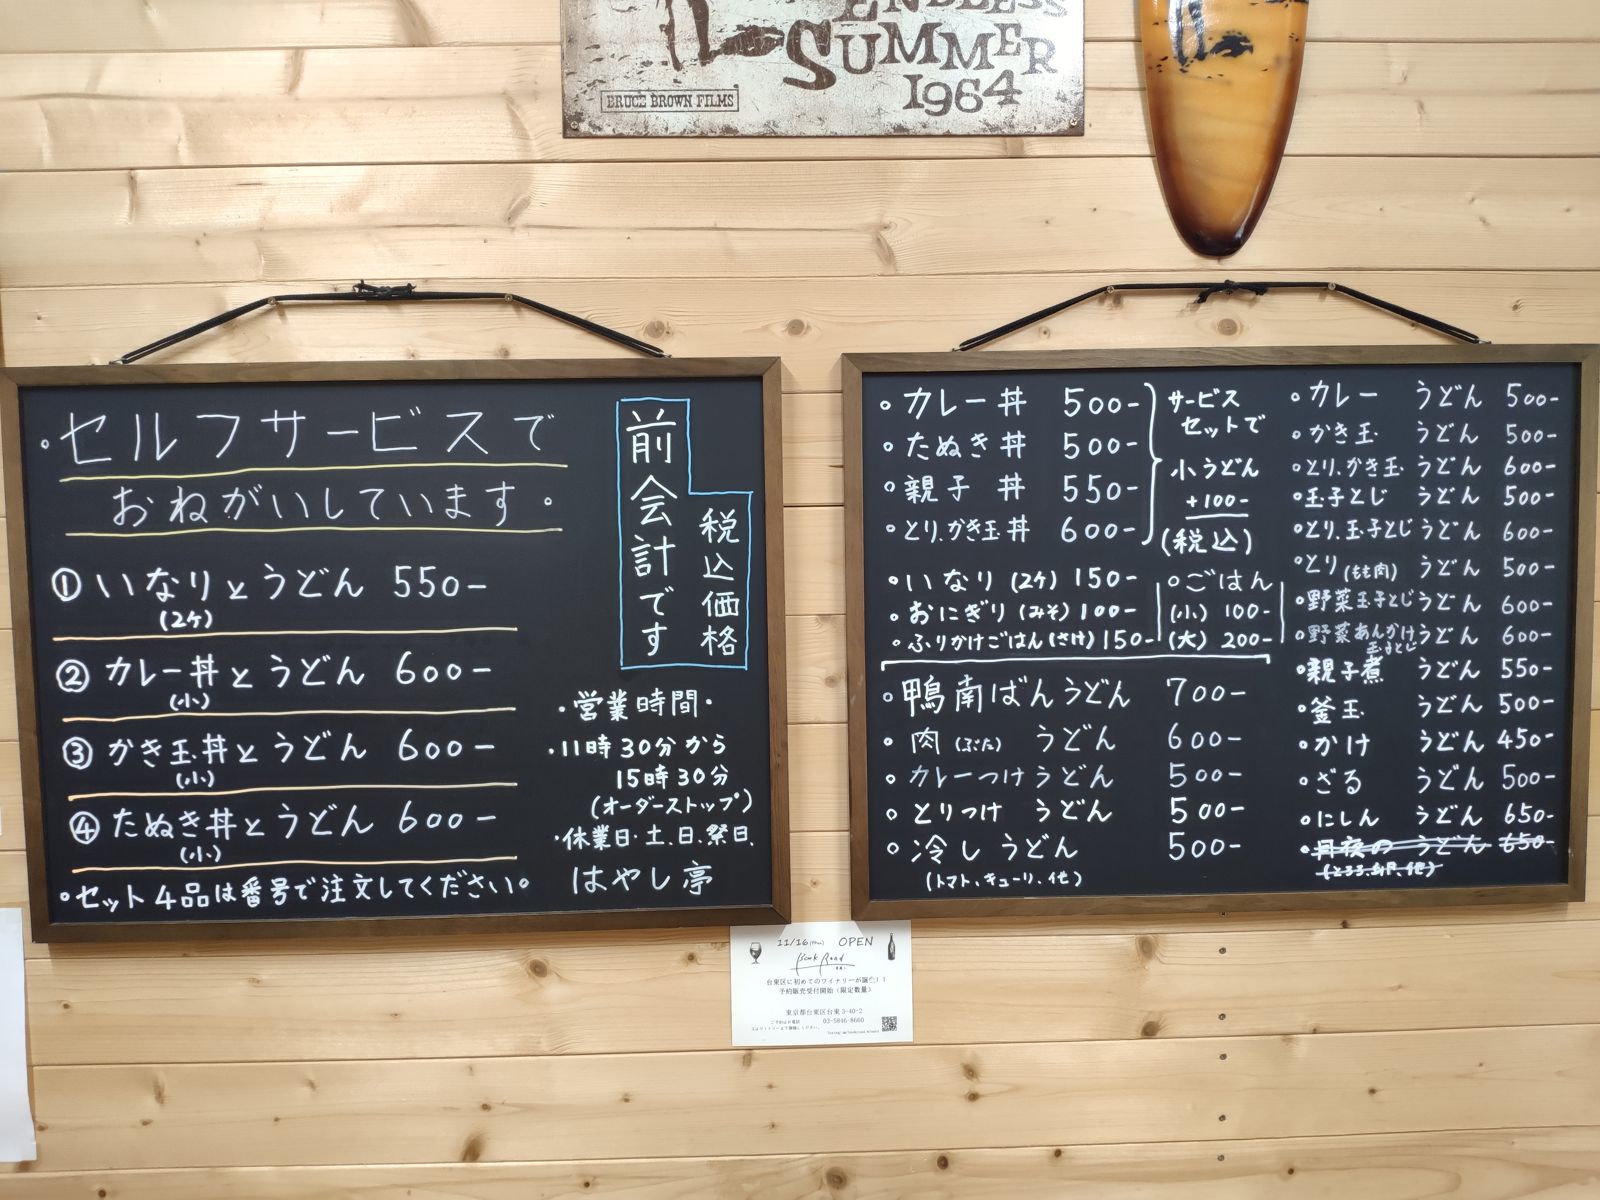 ENDLESS
SUMMER
1964
BRUCE BROWN FILMS
。セルフサービスで
おねがいしています。
前会計です
税込価格
①いなりとうどん 550-
(2ケ)
②カレー丼とうどん 600-
(小)
③かき玉丼とうどん 600-
(小)
④たぬき丼とうどん 600-
(小)
。セット4品は番号で注文してください。
・営業時間・
・11時30分から
15時30分
(オーダーストップ)
・休業日・土、日、祭日、
はやし亭
。カレー丼 500-
。たぬき丼 500-
。親子丼 550-
。とり、かき玉丼 600-
サービス
セットで
小うどん
+100-
(税込)
。いなり(2ケ) 150-
。おにぎり(みそ) 100-
。ふりかけごはん(さけ) 150-
。ごはん
(小) 100-
(大) 200-
。鴨南ばんうどん 700-
。肉(ぶた)うどん 600-
。カレーつけうどん 500-
。とりつけうどん 500-
。冷しうどん 500-
(トマト、キューリ、他)
。カレーうどん 500-
。かき玉うどん 500-
。とり、かき玉うどん 600-
。玉子とじうどん 500-
。とり、玉子とじうどん 600-
。とり(もも肉)うどん 500-
。野菜玉子とじうどん 600-
。野菜あんかけ玉子とじうどん 600-
。親子煮うどん 550-
。釜玉うどん 500-
。かけうどん 450-
。ざるうどん 500-
。にしんうどん 650-
うどん 650-
11/16(thu) OPEN
Book Road
台東区に初めてのワイナリーが誕生!!
予約販売受付開始(限定数量)
東京都台東区台東3-40-2
03-5846-8660